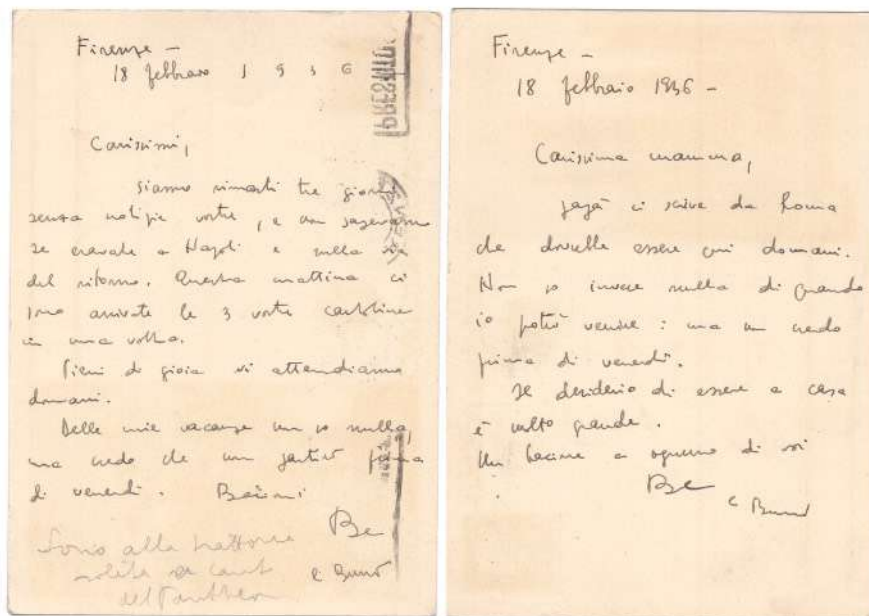 Firenze -
18 febbraio 1936
Carissimi,
siamo rimasti tre giorni
senza notizie vostre, e non sapevamo
se eravate a Napoli o sulla via
del ritorno. Questa mattina ci
sono arrivate le 3 vostre cartoline
in una volta.
Pieni di gioia vi attendiamo
domani.
Delle mie vacanze non so nulla,
ma credo che non partirò prima
di venerdì. Bacioni
Be
e Bruno
Sono alla trattoria
solita
del Pantheon
Firenze -
18 febbraio 1936 -
Carissima mamma,
papà ci scrive da Roma
che dovrebbe essere qui domani.
Non so invece nulla di quando
io potrò venire : ma non credo
prima di venerdì.
Il desiderio di essere a casa
è molto grande.
Un bacione a ognuno di voi
Be
e Bruno